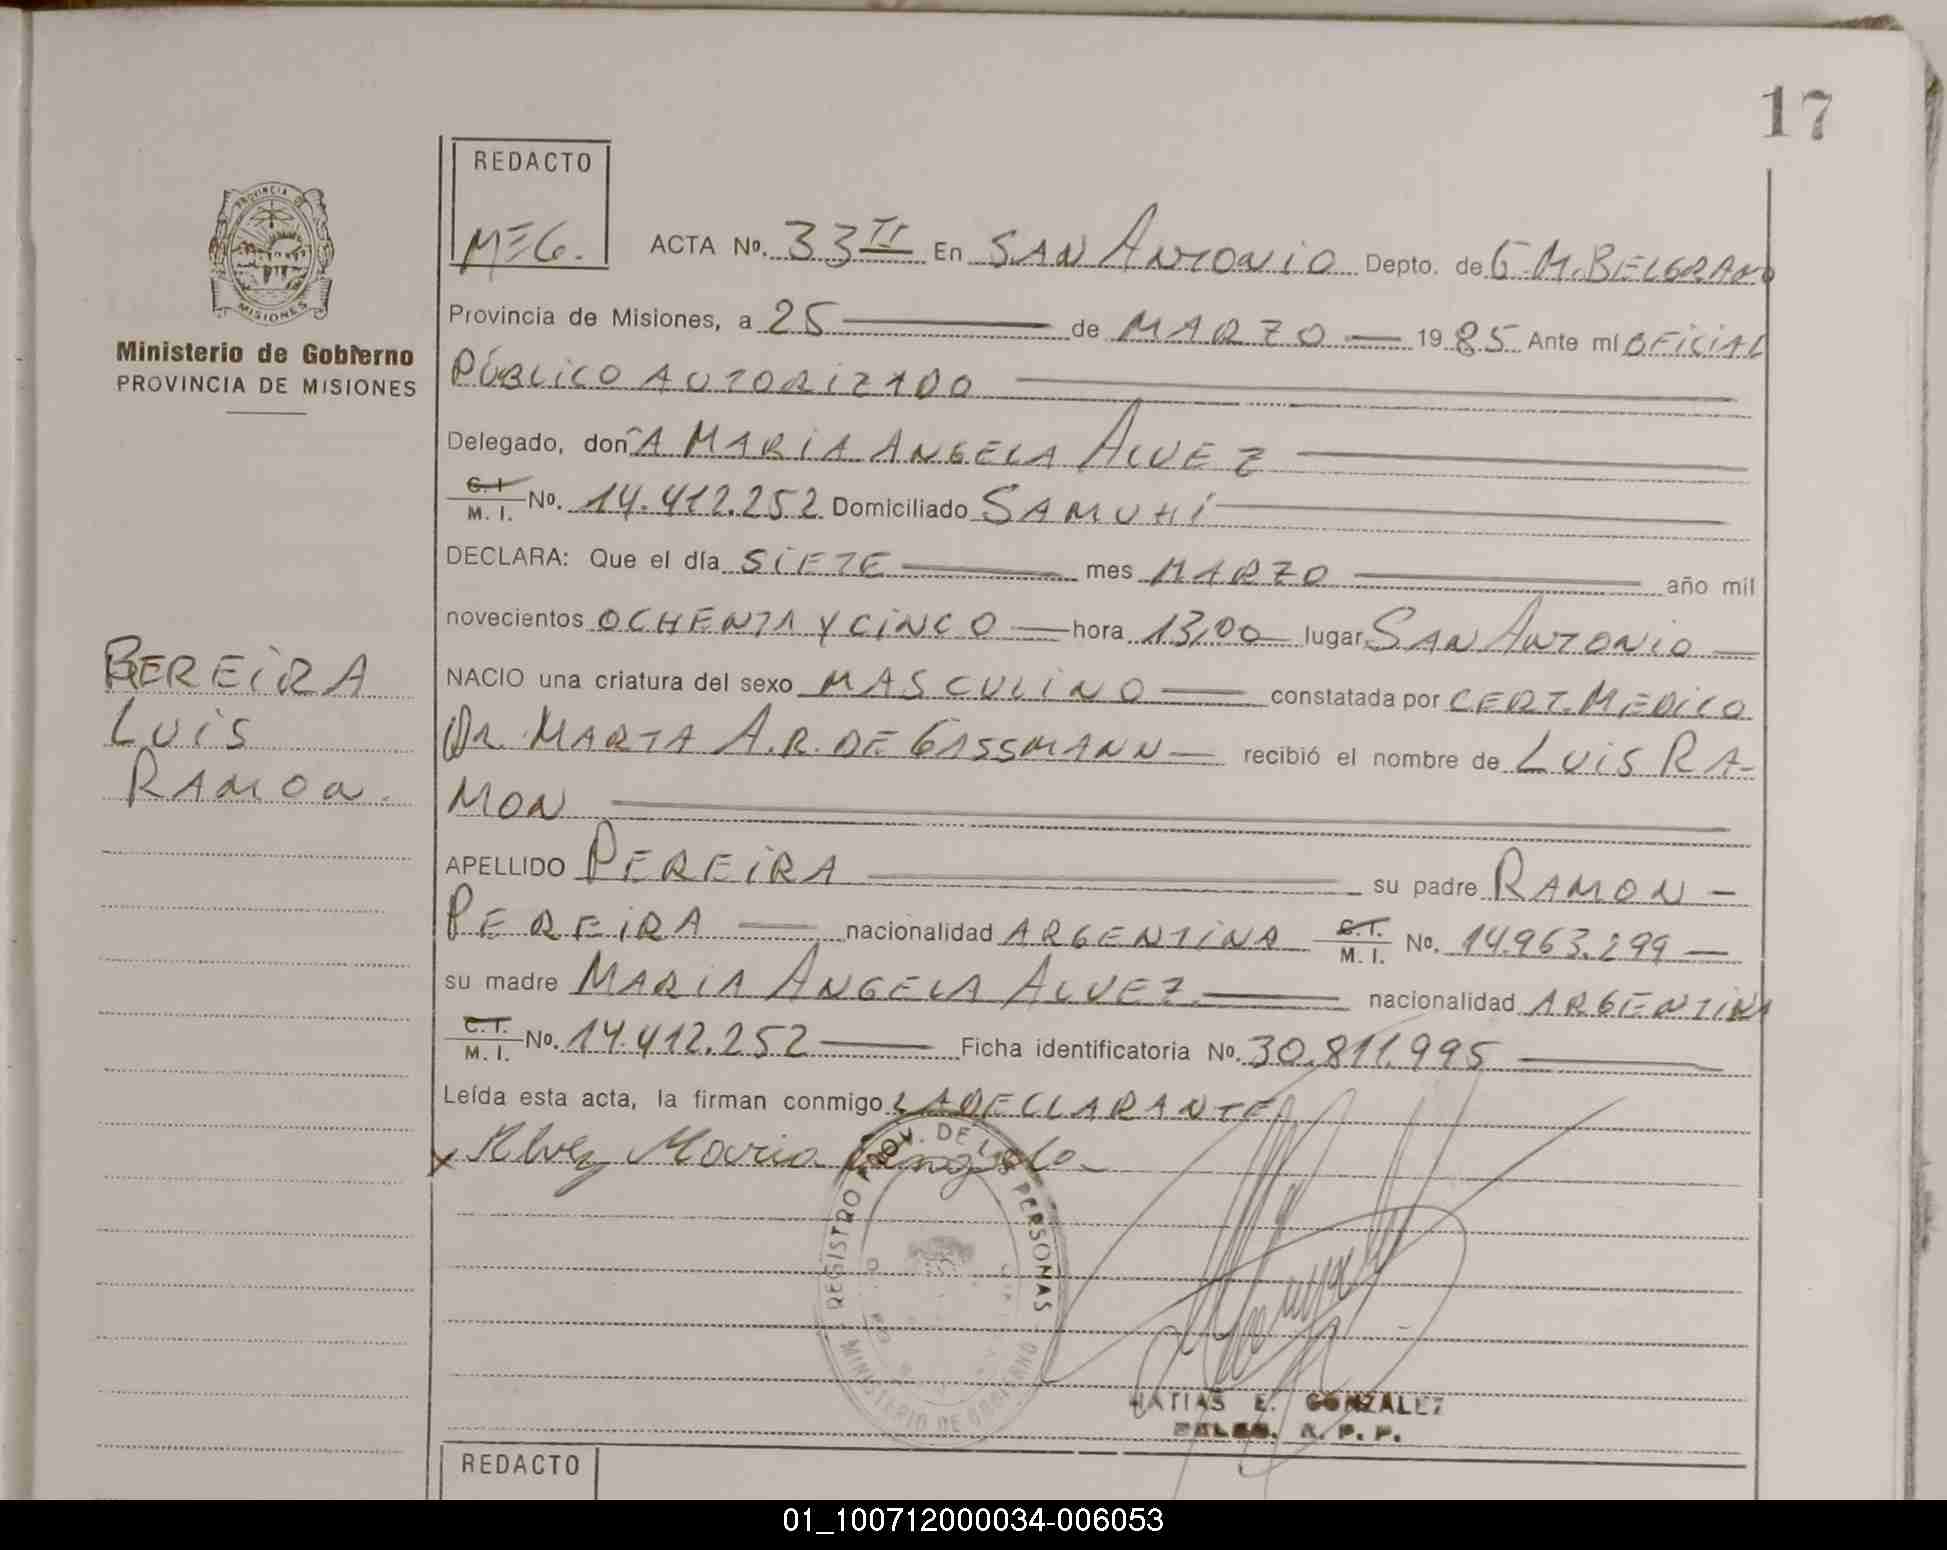 17
REDACTO
MEG.
PROVINCIA DE
MISIONES
Ministerio de Gobierno
PROVINCIA DE MISIONES
ACTA Nº. 33 TI En SAN ANTONIO Depto. de G. M. BELGRANO
Provincia de Misiones, a 25 de MARZO 1985 Ante mí OFICIAL
PÚBLICO AUTORIZADO
Delegado, doñA MARIA ANGELA ALVEZ
C.I. M. I. Nº. 14.412.252 Domiciliado SAMUHÍ
DECLARA: Que el día SIETE mes MARZO año mil
novecientos OCHENTA Y CINCO hora 13,00 lugar SAN ANTONIO
NACIO una criatura del sexo MASCULINO constatada por CERT. MEDICO
DRA. MARTA A.R. DE GASSMANN recibió el nombre de LUIS RA-
MON
APELLIDO PEREIRA su padre RAMON
PEREIRA nacionalidad ARGENTINA C.I. M. I. Nº. 14.963.299
su madre MARIA ANGELA ALVEZ nacionalidad ARGENTINA
C.I. M. I. Nº. 14.412.252 Ficha identificatoria Nº. 30.811.995
Leída esta acta, la firman conmigo LA DECLARANTE
x Alvez Maria Angela
PEREIRA
LUIS
RAMON.
REGISTRO PROV. DE LAS PERSONAS
MINISTERIO DE GOBIERNO
MATIAS E. GONZALEZ
R. P. P.
REDACTO
01_100712000034-006053